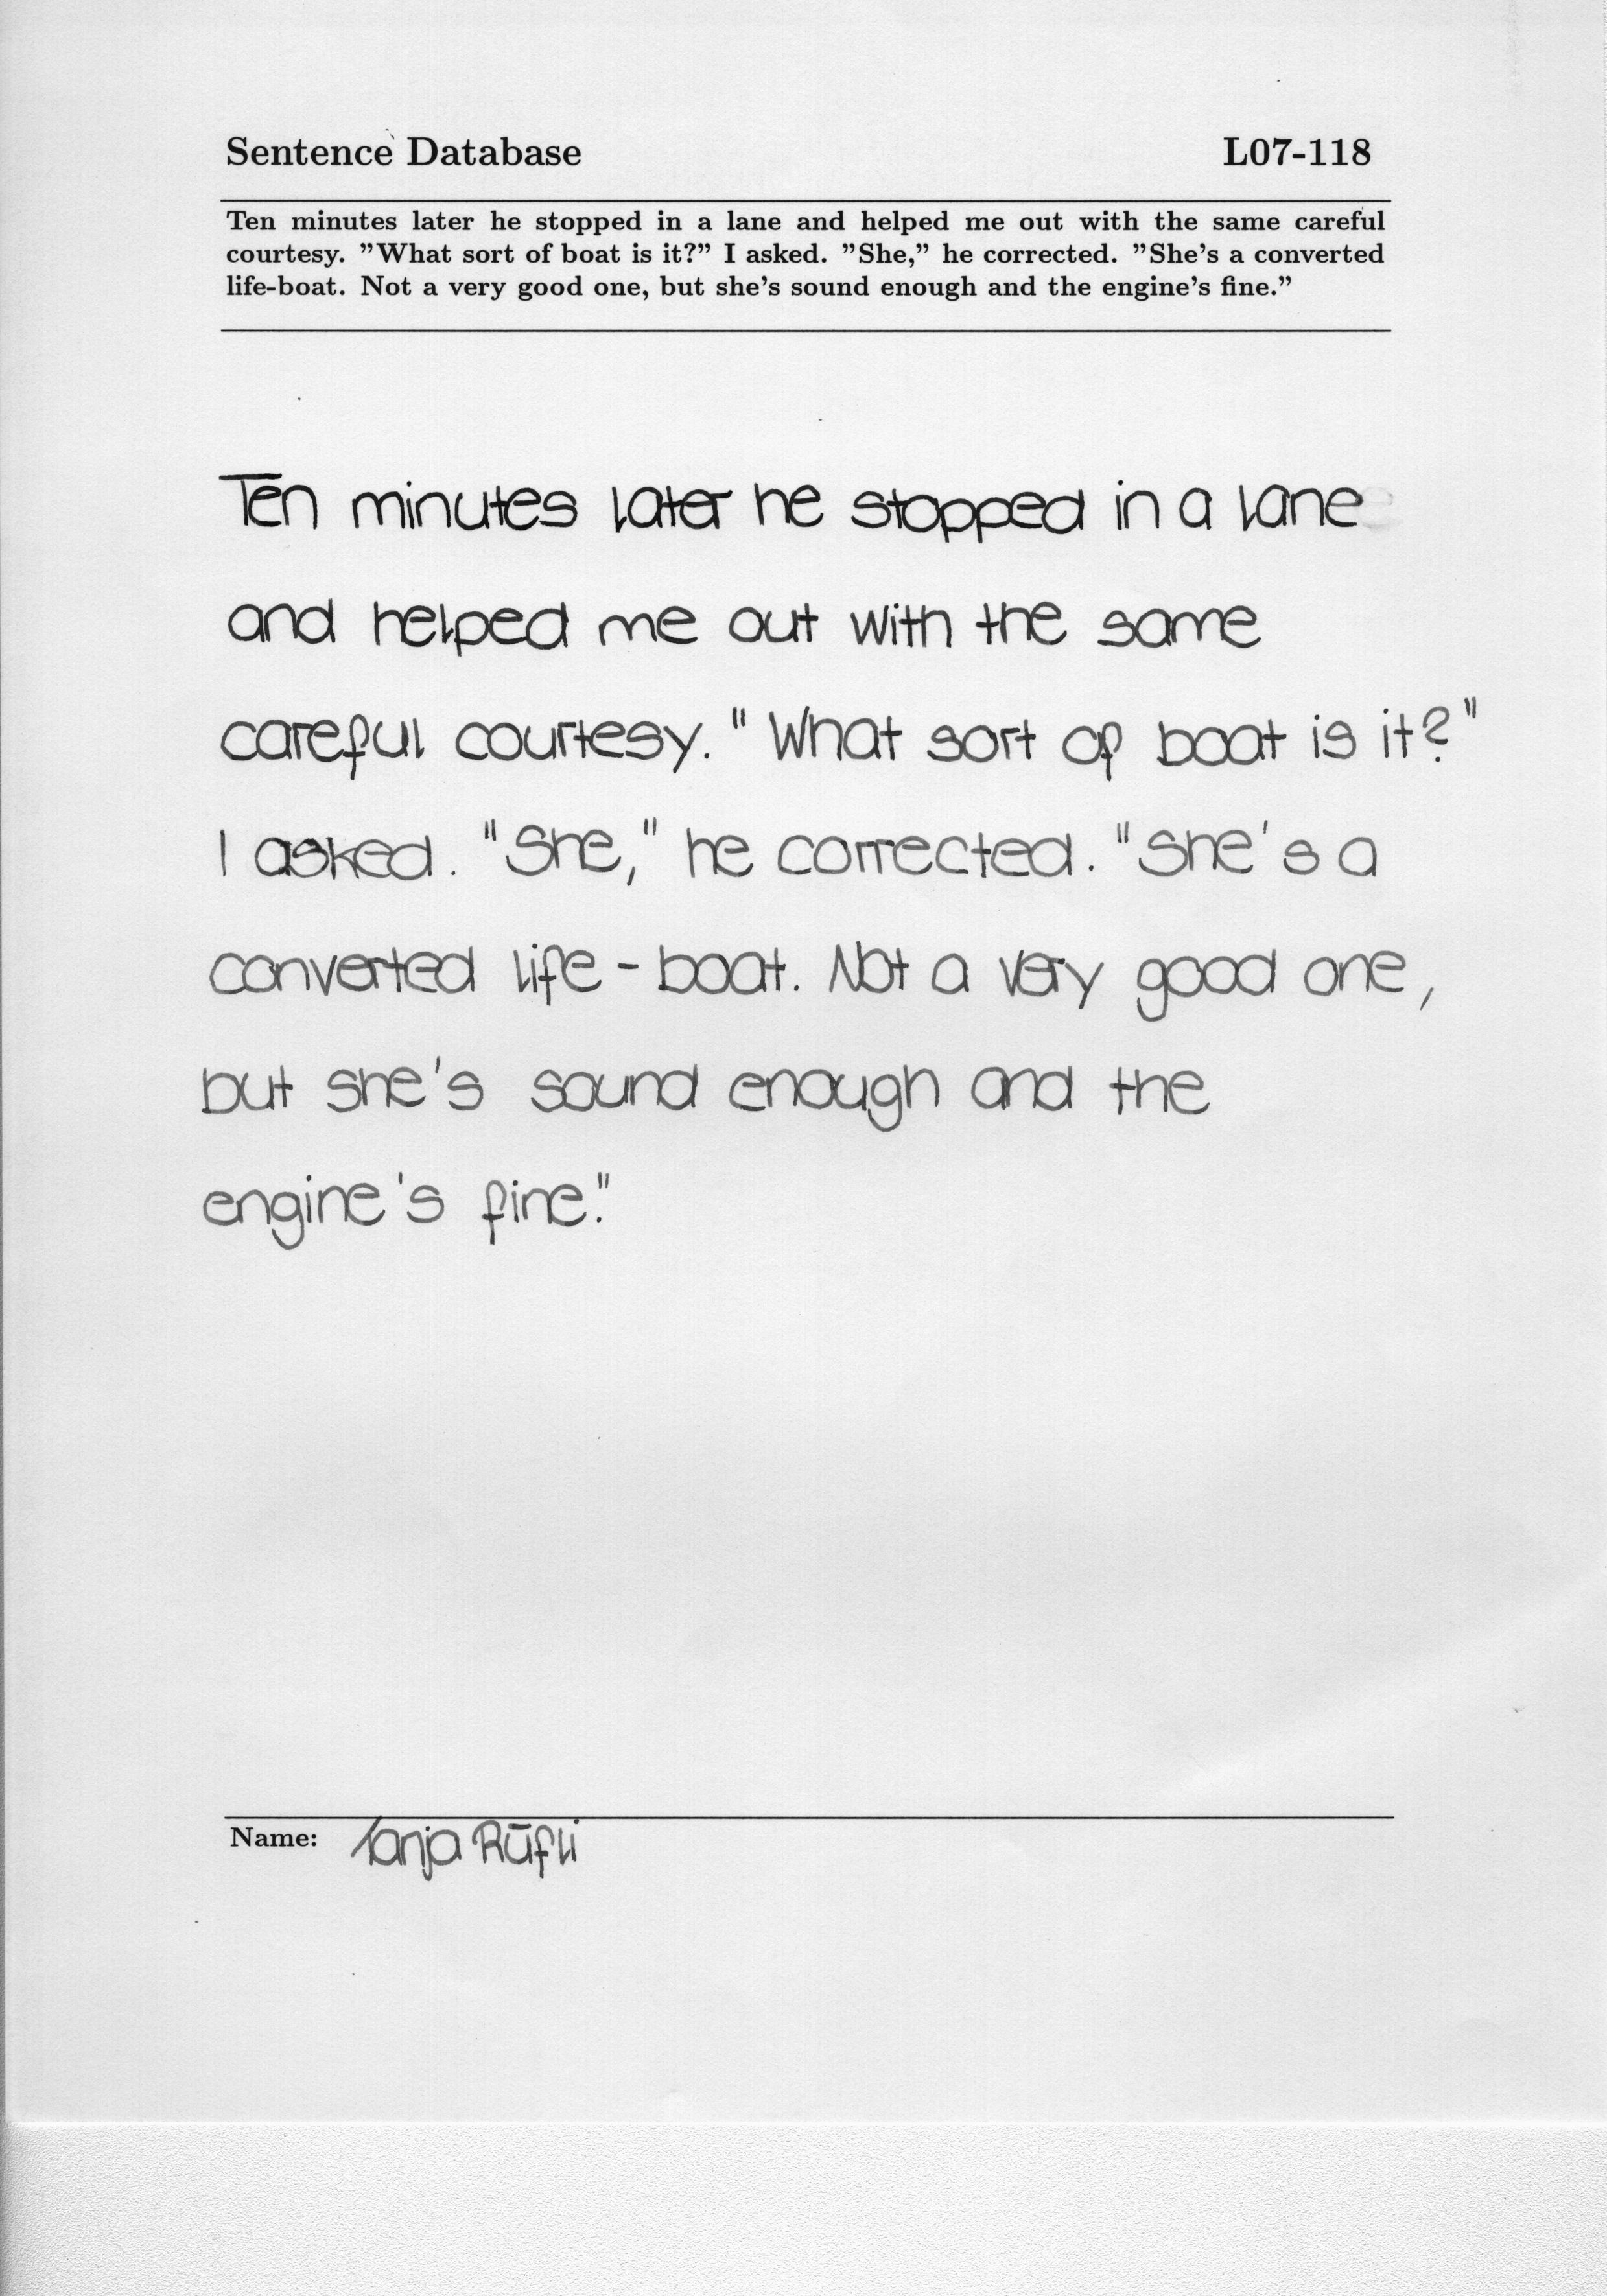 Sentence Database L07-118
Ten minutes later he stopped in a lane and helped me out with the same careful
courtesy. ”What sort of boat is it?” I asked. ”She,” he corrected. ”She’s a converted
life-boat. Not a very good one, but she’s sound enough and the engine’s fine.”
Ten minutes later he stopped in a lane
and helped me out with the same
careful courtesy. "What sort of boat is it?"
I asked. "She," he corrected. "She's a
converted life-boat. Not a very good one,
but she's sound enough and the
engine's fine."
Name: Tanja Rüfli